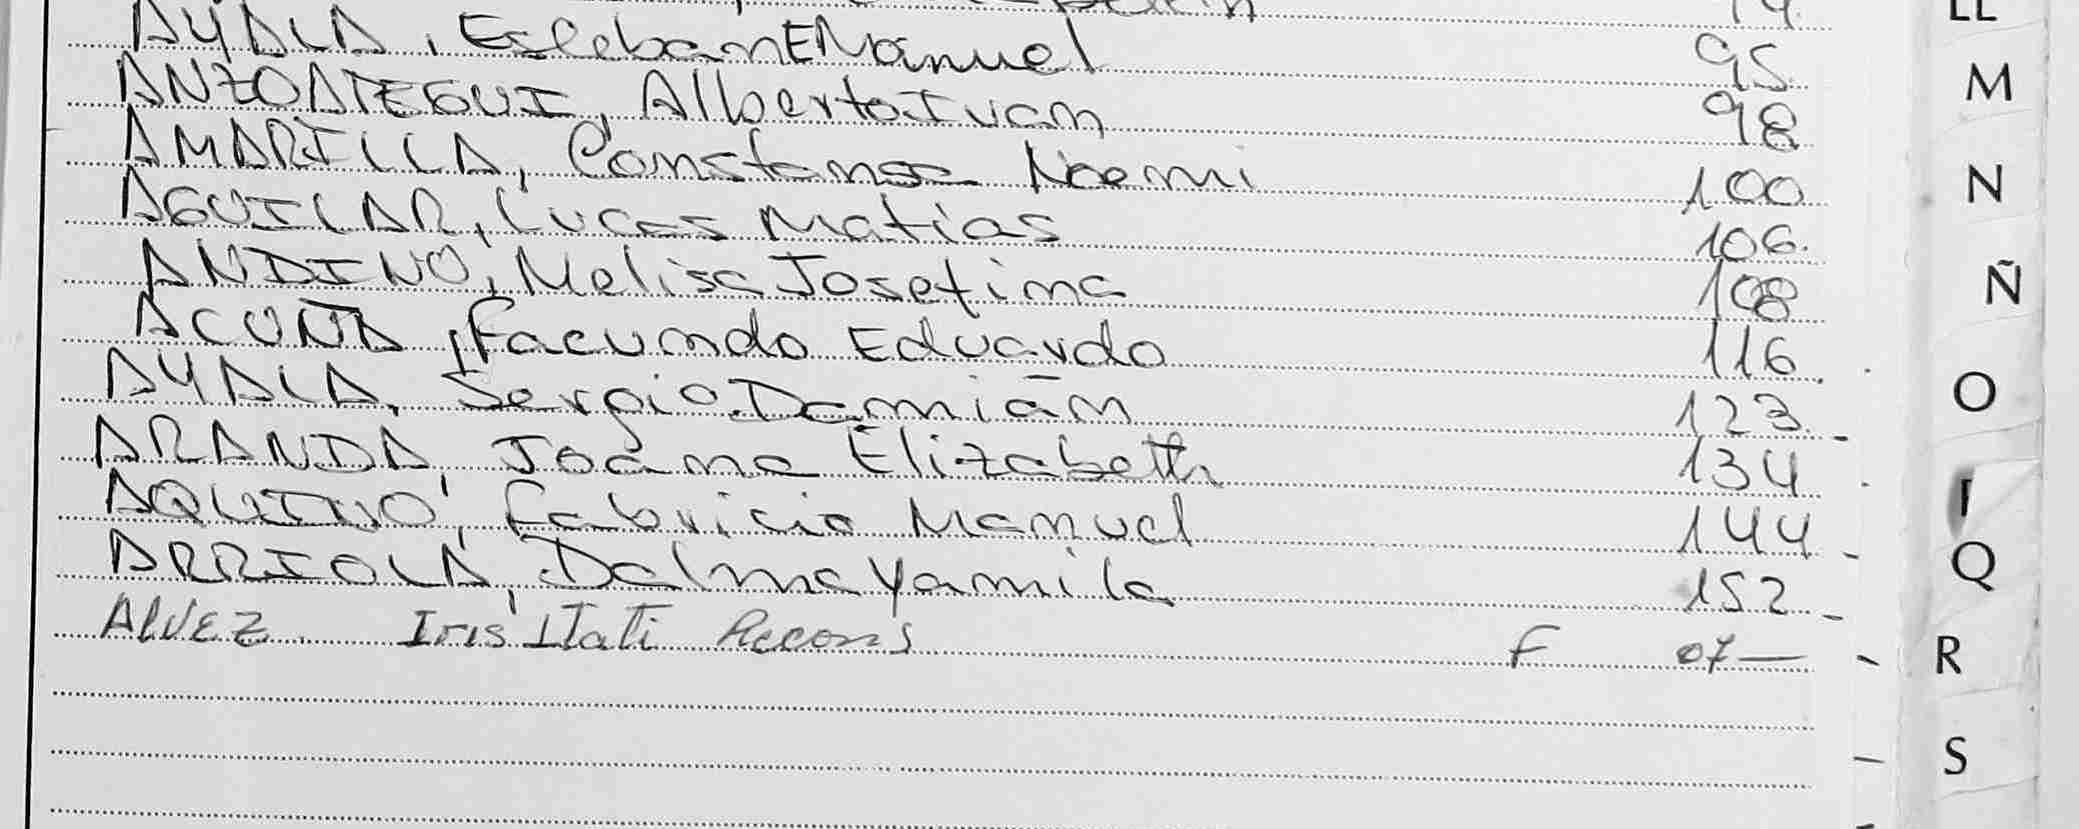 AYALA, Esteban Emanuel 95
ANZOATEGUI, Alberto Ivan 98
AMARILLA, Constansa Noemi 100
AGUILAR, Lucas Matias 106.
ANDINO, Melisa Josefina 108
ACUÑA, Facundo Eduardo 116
AYALA, Sergio Damián 123
ARANDA, Joana Elizabeth 134
AQUINO, Fabricio Manuel 144
ARRIOLA, Dalma Yamila 152
Alvez Iris Itati Recons F 07
LL
M
N
Ñ
O
Q
R
S